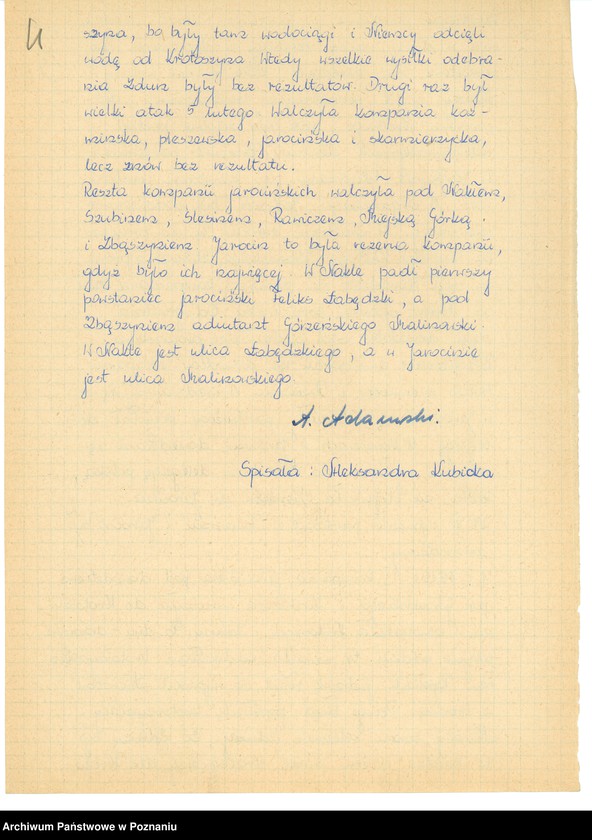 4
szyna, bo były tam wodociągi i Niemcy odcięli
wodę od Krotoszyna. Wtedy wszelkie wysiłki odebra-
nia Zdun były bez rezultatów. Drugi raz był
wielki atak 5 lutego. Walczyła kompania koź-
mińska, pleszewska, jarocińska i skamierzycka,
lecz znów bez rezultatu.
Reszta kompanii jarocińskich walczyła pod Nakłem,
Szubinem, Ślesinem, Rawiczem, Miejską Górką
i Zbąszyniem. Jarocin to była rezerwa kompanii,
gdyż było ich najwięcej. W Nakle padł pierwszy
powstaniec jarociński Feliks Łabędzki, a pod
Zbąszyniem adiutant Gorzeńskiego Malinowski.
W Nakle jest ulica Łabędzkiego, a w Jarocinie
jest ulica Malinowskiego.
A. Adamski.
Spisała: Aleksandra Kubicka
Archiwum Państwowe w Poznaniu